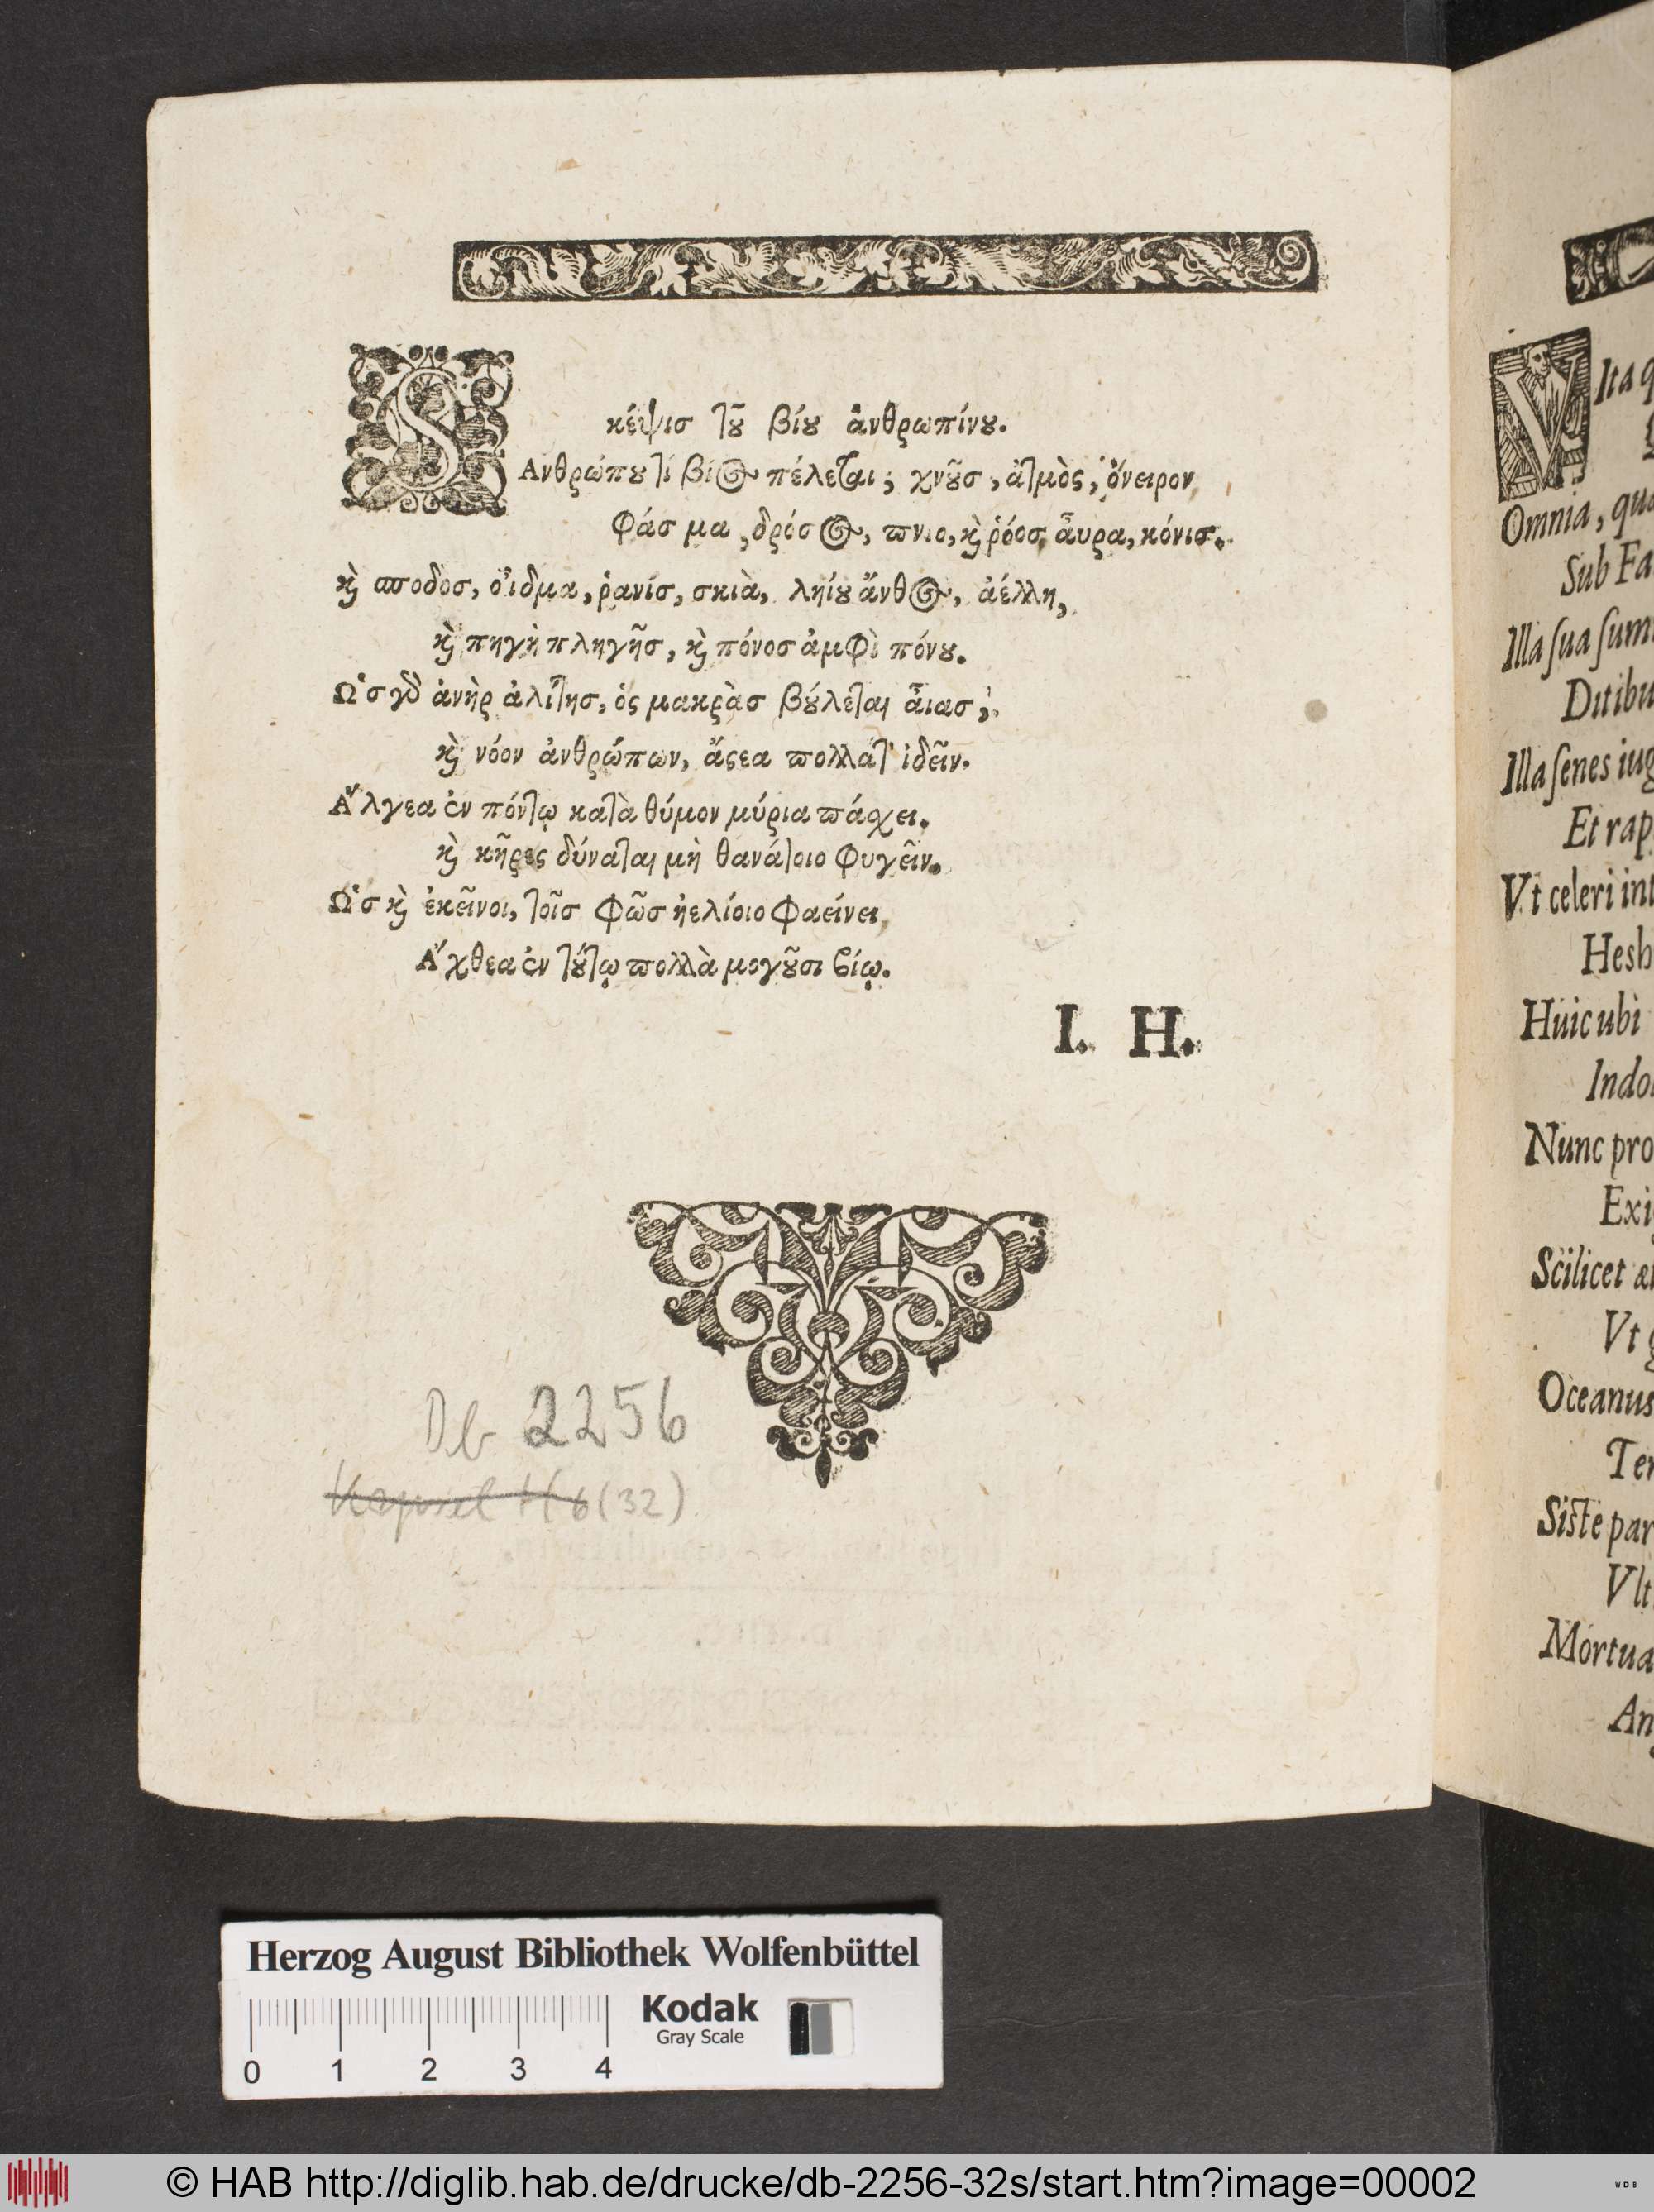 Sκέψισ τȣ͂ βίȣ ἀνθρωπίνȣ.
Ανθρώπȣ τί βίος πέλεται; χνȣ͂σ, ἀτμὸς, ὄνειρον,
Φάσ μα, δρόσος, πνιο, ϗ ῥόοσ, ἆυρα, κόνισ.
ϗ̀ σποδοσ, ὀίδμα, ῥανίσ, σκιὰ, ληίȣ ἄνθος, ἀέλλη,
ϗ̀ πηγὴ πληγῆσ, ϗ̀ πόνοσ ἀμφὶ πόνȣ.
Ω῾σ γὸ ἀνὴρ ἀλίτησ, ὁς μακρὰσ βȣ́λεται ἆιασ,
ϗ̀ νόον ἀνθρώπων, ἄστεα πολλάτ' ἰδεῖν.
Α῎λγεα ἐν πόντῳ κατὰ θύμον μύρια πάχει.
ϗ̀ κῆρες δύναται μὴ θανάτοιο φυγεῖν.
Ω῾σ ϗ̀ ἐκεῖνοι, τοῖσ φῶσ ἠελίοιο φαείνει,
Α῎χθεα ἐν τȣ́τῳ πολλὰ μογȣ͂σι βίῳ.
I. H.
Db 2256
Kapsel H 6 (32)
Vita q
Omnia, qua
Sub Fa
Illa ſua ſum
Ditibu
Illa ſenes iug
Et rap
Vt celeri int
Hesb
Huic ubi
Indo
Nunc pro
Exi
Scilicet æ
Vt g
Oceanus
Ter
Siſte par
Vlt
Mortua
An
Herzog August Bibliothek Wolfenbüttel
Kodak
Gray Scale
0 1 2 3 4
© HAB http://diglib.hab.de/drucke/db-2256-32s/start.htm?image=00002
WDB